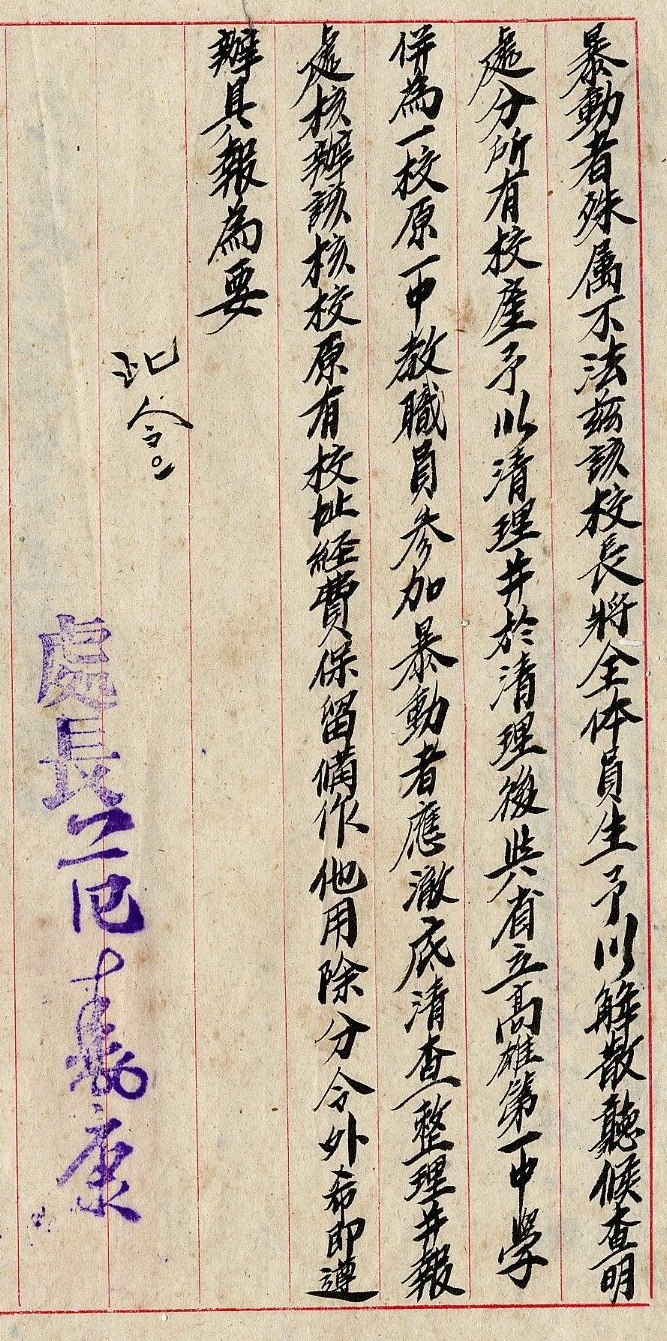 暴動者殊属不法茲該校長將全体員生予以解散聽候查明
處分所有校產予以清理并於清理後與省立高雄第一中學
併為一校原一中教職員參加暴動者應澈底清查整理并報
處核辦該校原有校址経費保留備作他用除分令外希即遵
辦具報為要
此令。
處長范壽康